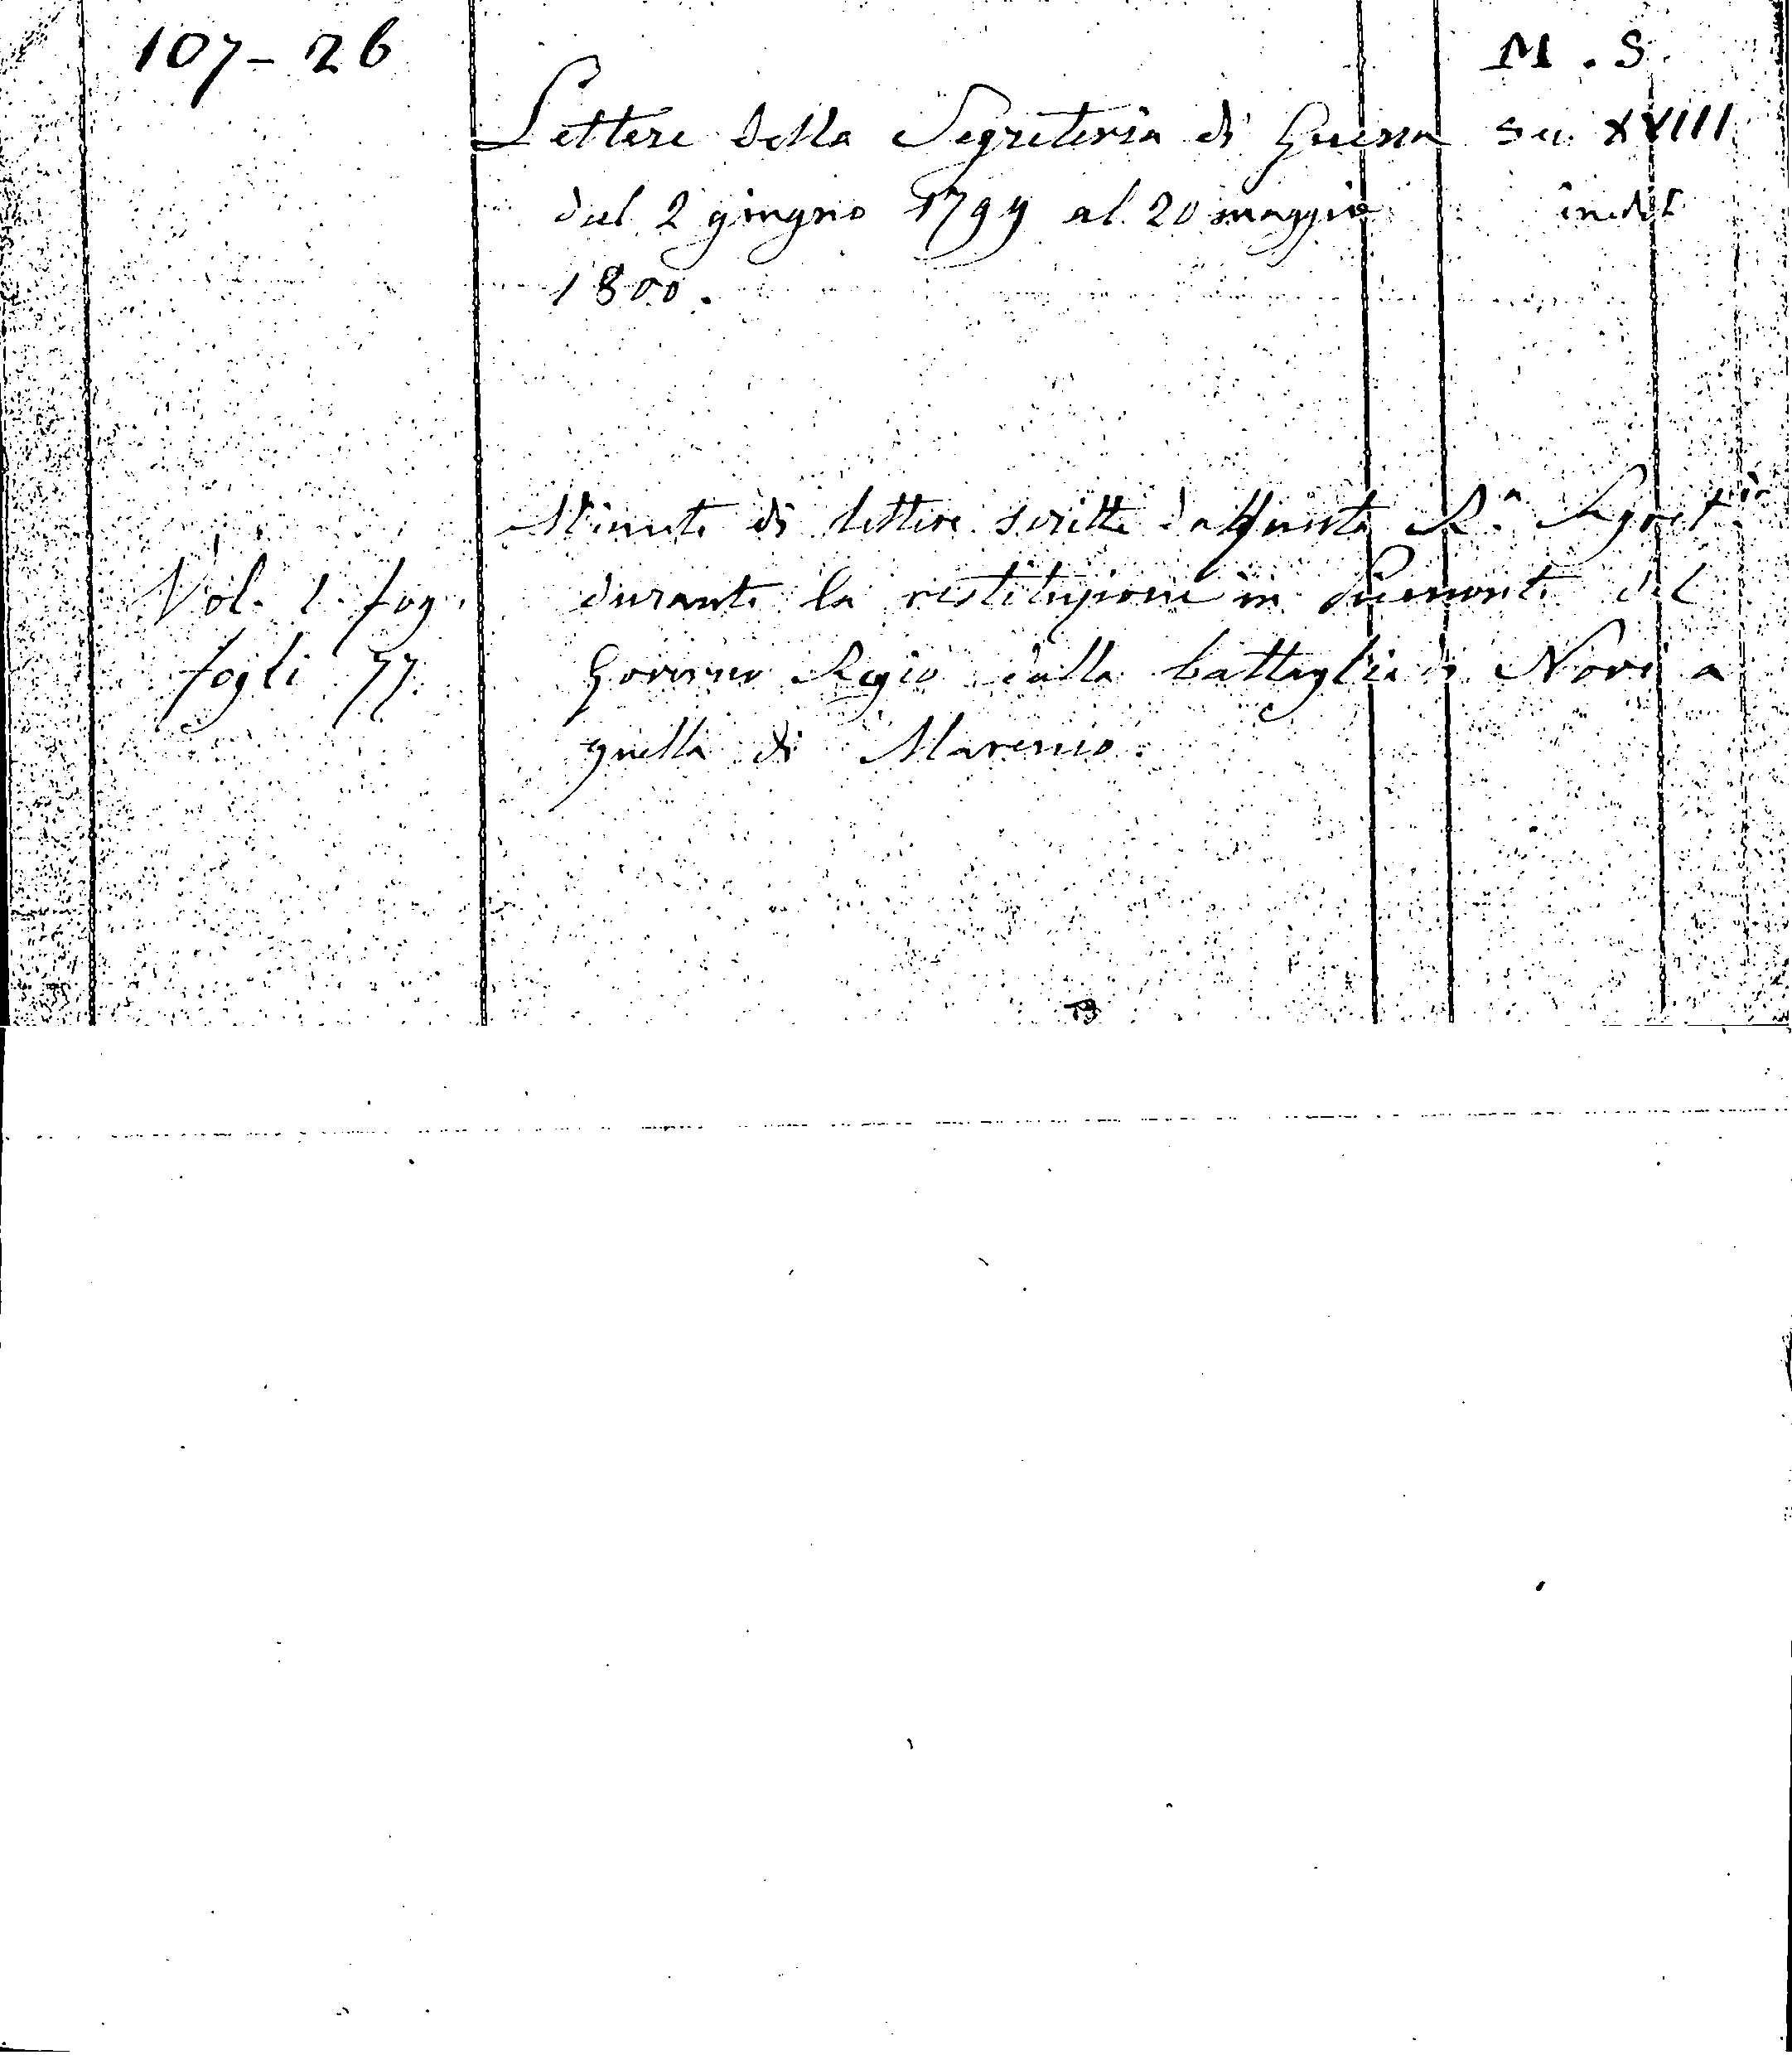 107-26
M. S.
Lettere della Segreteria di Guerra
sec. XVIII
dal 2 giugno 1799 al 20 maggio
inedit
1800.
Minute di lettere scritte da questa R.ª Segret.ia
Vol. 1. fog.
durante la restituzione in Piemonte del
fogli 77.
Governo Regio dalla battaglia di Novi a
quella di Marengo.